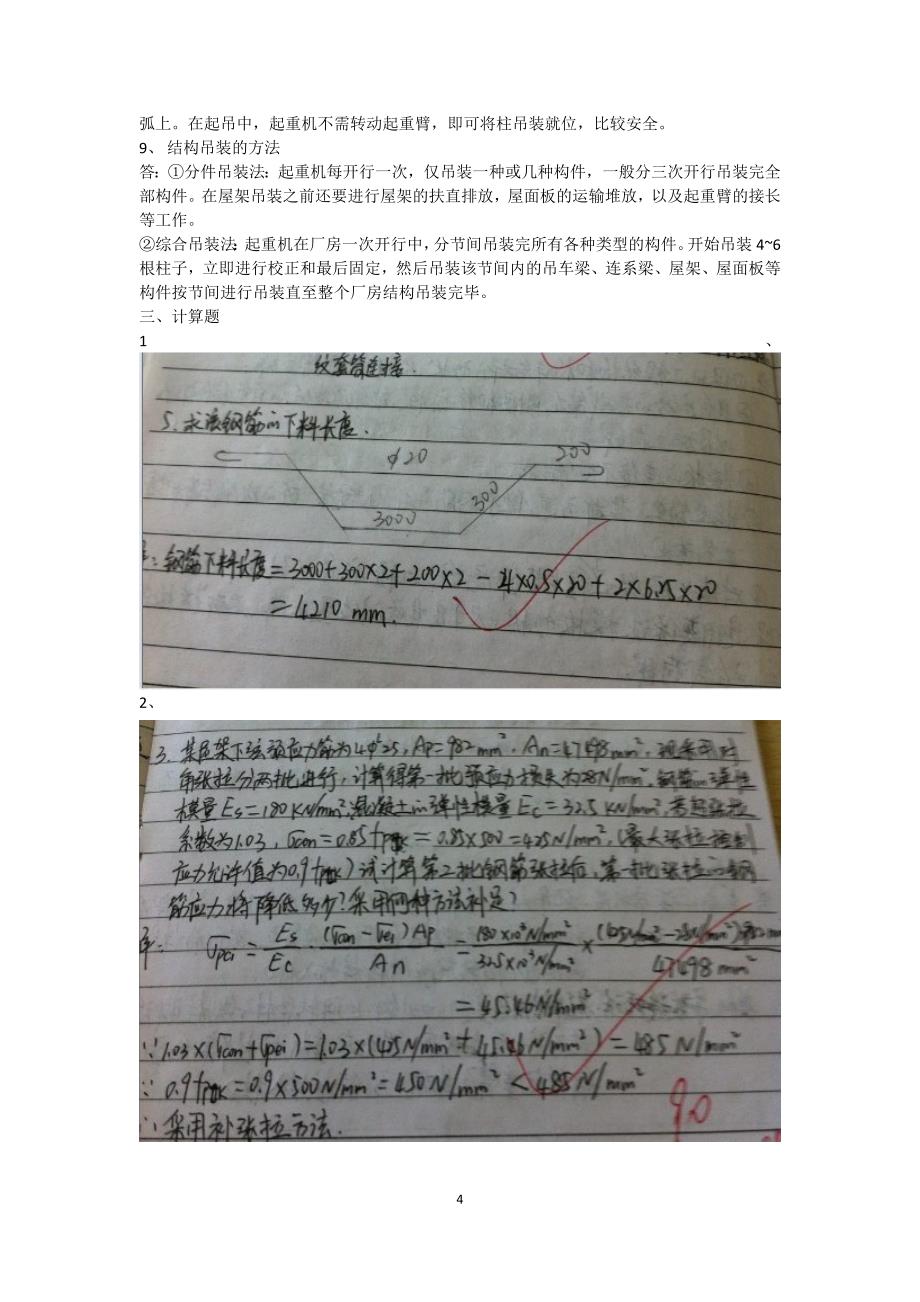 弧上。在起吊中，起重机不需转动起重臂，即可将柱吊装就位，比较安全。
9、 结构吊装的方法
答：①分件吊装法：起重机每开行一次，仅吊装一种或几种构件，一般分三次开行吊装完全
部构件。在屋架吊装之前还要进行屋架的扶直排放，屋面板的运输堆放，以及起重臂的接长
等工作。
②综合吊装法：起重机在厂房一次开行中，分节间吊装完所有各种类型的构件。开始吊装 4~6
根柱子，立即进行校正和最后固定，然后吊装该节间内的吊车梁、连系梁、屋架、屋面板等
构件按节间进行吊装直至整个厂房结构吊装完毕。
三、计算题
1 、
纹套筒连接.
5. 求该钢筋的下料长度.
φ20
200
300
3000
钢筋下料长度=3000+300×2+200×2-4×0.5×20+2×6.25×20
=4210 mm.
2、
3. 某屋架下弦预应力筋为4φ25, Ap=982mm², An=47498mm², 现采用对
角张拉分两批进行, 计算得第一批预应力损失为28N/mm², 钢筋的弹性
模量Es=180KN/mm², 混凝土的弹性模量Ec=32.5KN/mm², 若超张拉
系数为1.03, σcon=0.85fpyk=0.85×500=425N/mm², (最大张拉控制
应力允许值为0.9fpyk) 试计算第二批钢筋张拉后, 第一批张拉的钢
筋应力将降低多少? 采用何种方法补足?
σpci = Es/Ec · (σcon-σei)Ap/An = 180×10³N/mm²/32.5×10³N/mm² × (425N/mm²-28N/mm²)982mm²/47498mm²
=45.46N/mm²
∵1.03×(σcon+σpci)=1.03×(425N/mm²+45.46N/mm²)=485N/mm²
∵0.9fpyk=0.9×500N/mm²=450N/mm²<485N/mm²
∴采用补张拉方法.
90
4